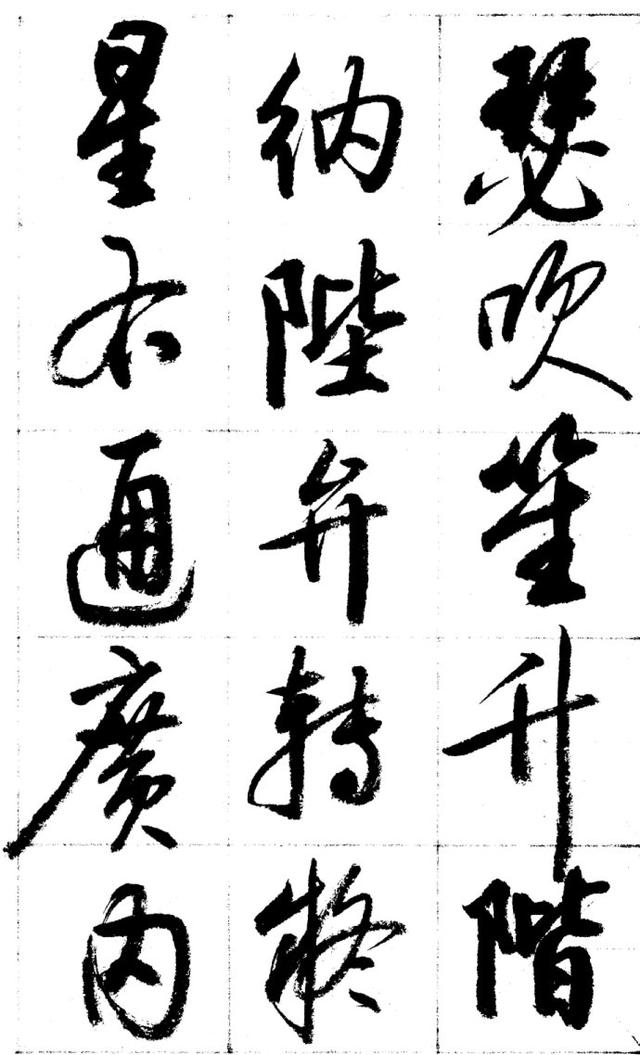 瑟吹笙升階
納陛弁轉疑
星右通廣內